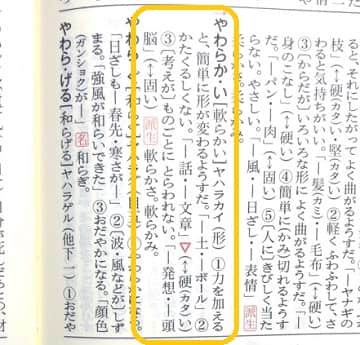 枝」(↔硬(カタ)い・堅(カタ)い) ②軽くふわふわして、さ
わると気持ちがいい。「―髪(カミ)・―毛布」(↔硬い)
③〔からだが〕いろいろな形によく曲がるようす。「―
身のこなし」(↔硬い) ④簡単に〔かみ〕切れるようす
だ。「―パン・―肉」(↔固い) ⑤〔人に〕きびしく当た
らない。やさしい。「―風・―日ざし・―表情」派生
やわらか・い［軟らかい］ヤハラカイ(形) ①力を加える
と、簡単に形が変わるようすだ。「―土・―ボール」②
かたくるしくない。「―話・―文章」▽(↔硬(カタ)い)
③〔考えが〕ものごとにとらわれない。「―発想・―頭
脳」(↔固い) 派生 軟らかさ。軟らかみ。
「日ざしも―・春先・寒さが―」②〔波・風などが〕しず
まる。「強風が和らいできた」③おだやかになる。「顔色
(ガンショク)が―」名 和らぎ。
やわら・げる［和らげる］ヤハラゲル(他下一) ①おだや